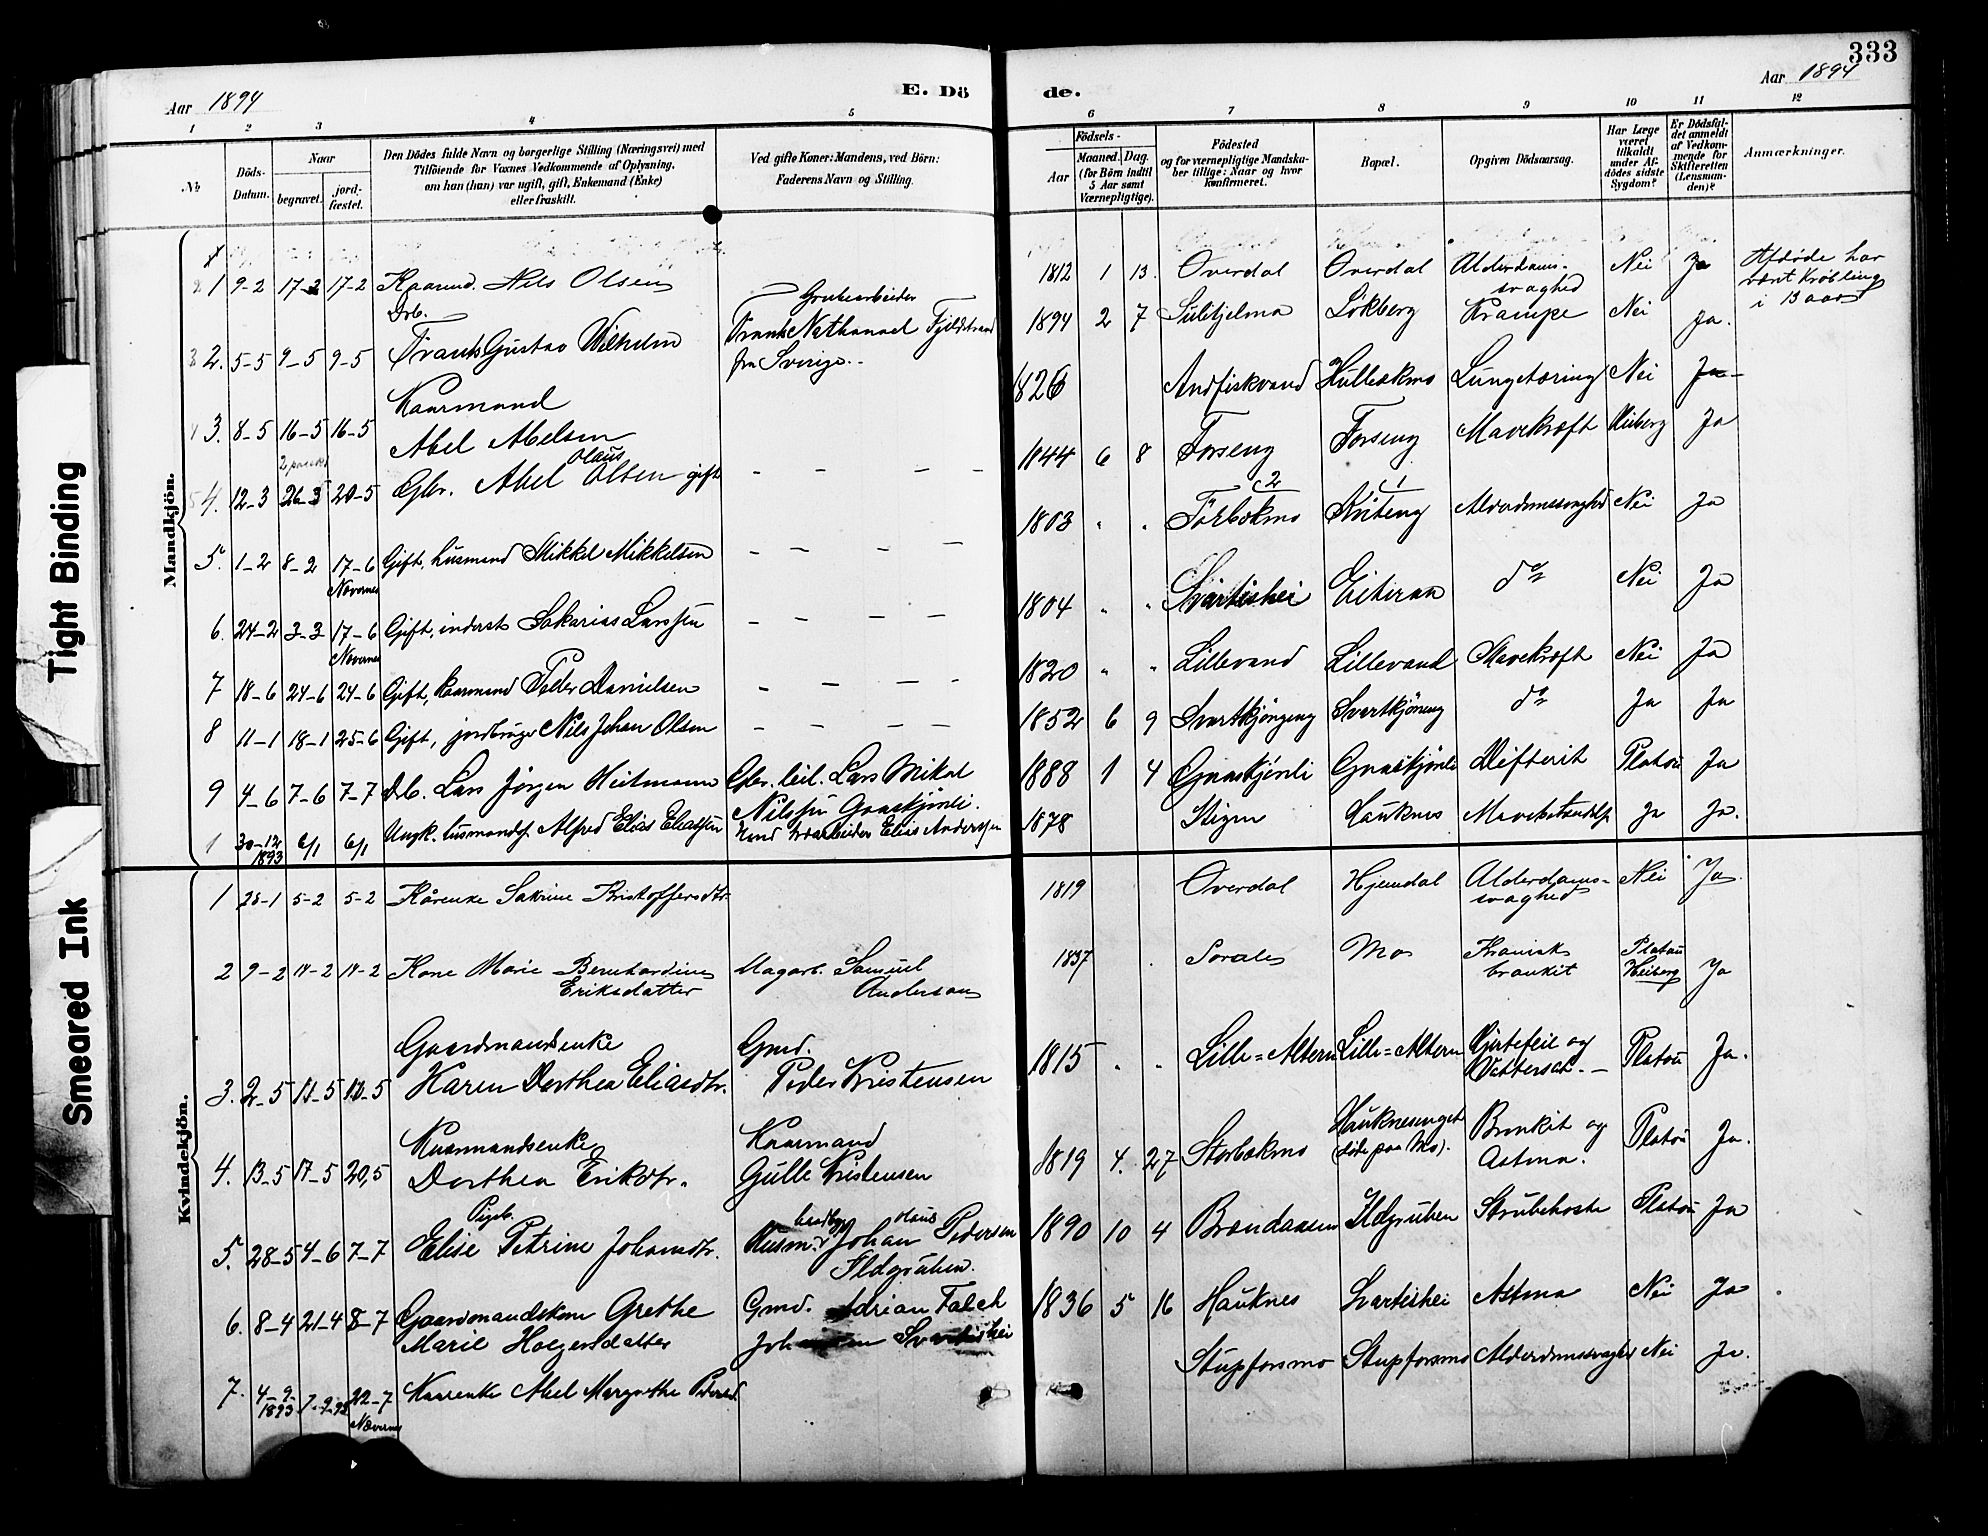 333
Aar 1894
E. Dö
de.
Aar 1894
1 2 3 4 5
6 7 8 9 10 11 12
No
Döds-Datum.
Naar
begravet.
jord-fæstet.
Den Dödes fulde Navn og borgerlige Stilling (Næringsvei) med
Tilföiende for Voxnes Vedkommende af Oplysning,
om han (hun) var ugift, gift, Enkemand (Enke)
eller fraskilt.
Ved gifte Koner: Mandens, ved Börn:
Faderens Navn og Stilling.
Födsels-
Aar
Maaned. Dag.
(for Börn indtil
5 Aar samt
Værnepligtige).
Födested
og for værnepligtige Mandska-
ber tillige: Naar og hvor
konfirmeret.
Bopæl.
Opgiven Dödsaarsag.
Har Læge
været
tilkaldt
under Af-
dödes sidste
Sygdom?
Er Dödsfal-
det anmeldt
af Vedkom-
mende for
Skifteretten
(Lensman-
den)?
Anmærkninger.
Mandkjön.
1 9-2 17-2 17-2 Kaarmd. Nils Olsen 1812 1 13. Overdal Overdal Alderdoms-svaghed Nei Ja Afdöde har
været Kröbling
i 13 aar
2. 5-5 9-5 9-5 Drb. Frants Gustav Wilhelm Grubearbeider Frants Nathanael Fjeldstrand fra Sverige 1894 2 7 Sulitjelma Lökberg Krampe Nei Ja.
3. 8-5 16-5 16-5 Kaarmand Abel Abelsen 1826 Andfiskvand Lungetæring Nei Ja
4. 12-3 26-3 20-5 Gbr. Abel Olaus Olsen gift 1844 6 8 Forseng Forseng Mavekræft Heiberg Ja
5. 1-2 8-2 17-6 Nævernes Gift, husmand Mikkel Mikkelsen 1803 " " Kviteng Alderdomssvaghed Nei Ja
6. 24-2 3-3 17-6 Nævernes Gift, inderst Sakarias Larssen 1804 " " Svartishei Eiteraa do Nei Ja
7 18-6 24-6 24-6 Gift, kaarmand Peder Danielsen 1820 " " Lillevand Lillevand Mavekræft Nei Ja
8 11-1 18-1 25-6 Gift, jordbruger Nils Johan Olsen 1852 6 9 Svartkjöngeng do Ja Ja
9 4-6 7-6 7-7 Db. Lars Jörgen Heitmann Gbr. leil. Lars Mikal Nilssen Gaaskjönli. 1888 1 4 Gaaskjönli Gaaskjönli Difterit Platou Ja
1 30-12 1893 6/1 6/1 Ungk. husmandss. Alfred Elias Eliassen Elias Anderssen 1878 Stigen Hauknes Ja Ja.
Kvindekjön.
1 28-1 5-2 5-2 Kårenke Sakrine Kristoffersdtr. 1819 Overdal Hjemdal Alderdoms-svaghed Nei Ja.
2 9-2 14-2 14-2 Kone Marie Bernhardine Eriksdatter Magarb. Samuel Anderson 1837 Mo Kronisk bronkit Platou Heiberg Ja
3. 2-5 11-5 11-5 Gaardmandsenke Karen Dorthea Eliasdtr. Gmd. Peder Kristensen 1815 " " Lille=Alteren Lille=Alteren Hjertefeil og Vattersot. Platou Ja.
4. 13-5 17-5 20,5 Kaarmandsenke Dorthea Eriksdtr. Kaarmand Gulle Kristensen 1819 4. 27 Storbækmo Hauknesenget (döde paa Mo). Bronkit og Astma. Platou Ja.
5. 28-5 4-6 7-7 Pigeb. Elise Petrine Johansdtr. Husm. Johan Olaus Pedersen Ildgruben. 1890 10 4 Brændaasen Ildgruben Strubehoste Platou Ja
6. 8-4 21-4 8-7 Gaardmandskone Grethe Marie Holgersdatter Gmd. Adrian Falch Svartishei 1836 5 16 Hauknes Svartishei Astma Nei Ja
7. 4-9- 1893 22-7 Nævernes Kaarenke Abel Margrethe Pedersd. Stupforsmo Stupforsmo Alderdomssvaghed Nei Ja.
Tight Binding
Smeared Ink